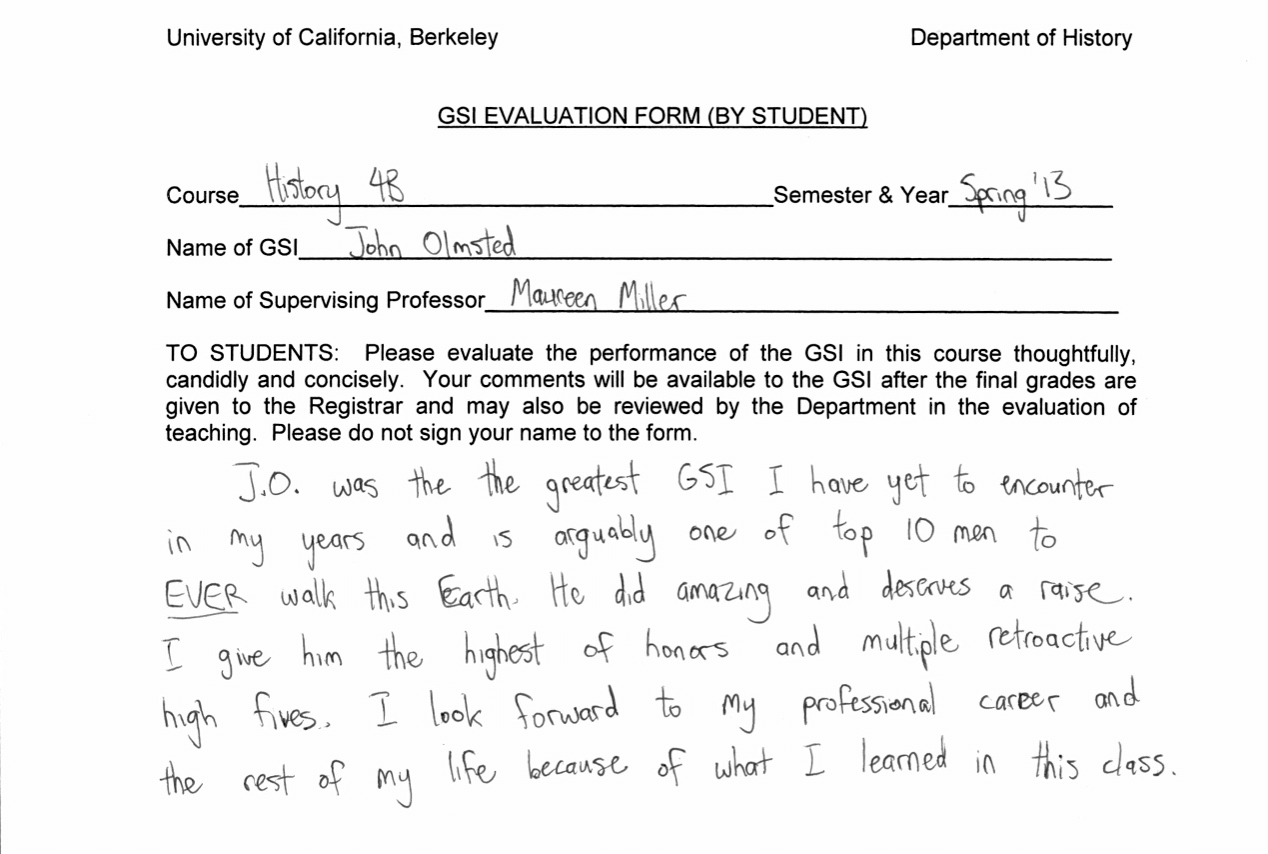 University of California, Berkeley Department of History
GSI EVALUATION FORM (BY STUDENT)
Course History 4B Semester & Year Spring '13
Name of GSI John Olmsted
Name of Supervising Professor Maureen Miller
TO STUDENTS: Please evaluate the performance of the GSI in this course thoughtfully,
candidly and concisely. Your comments will be available to the GSI after the final grades are
given to the Registrar and may also be reviewed by the Department in the evaluation of
teaching. Please do not sign your name to the form.
J.O. was the the greatest GSI I have yet to encounter
in my years and is arguably one of top 10 men to
EVER walk this Earth. He did amazing and deserves a raise.
I give him the highest of honors and multiple retroactive
high fives. I look forward to my professional career and
the rest of my life because of what I learned in this class.